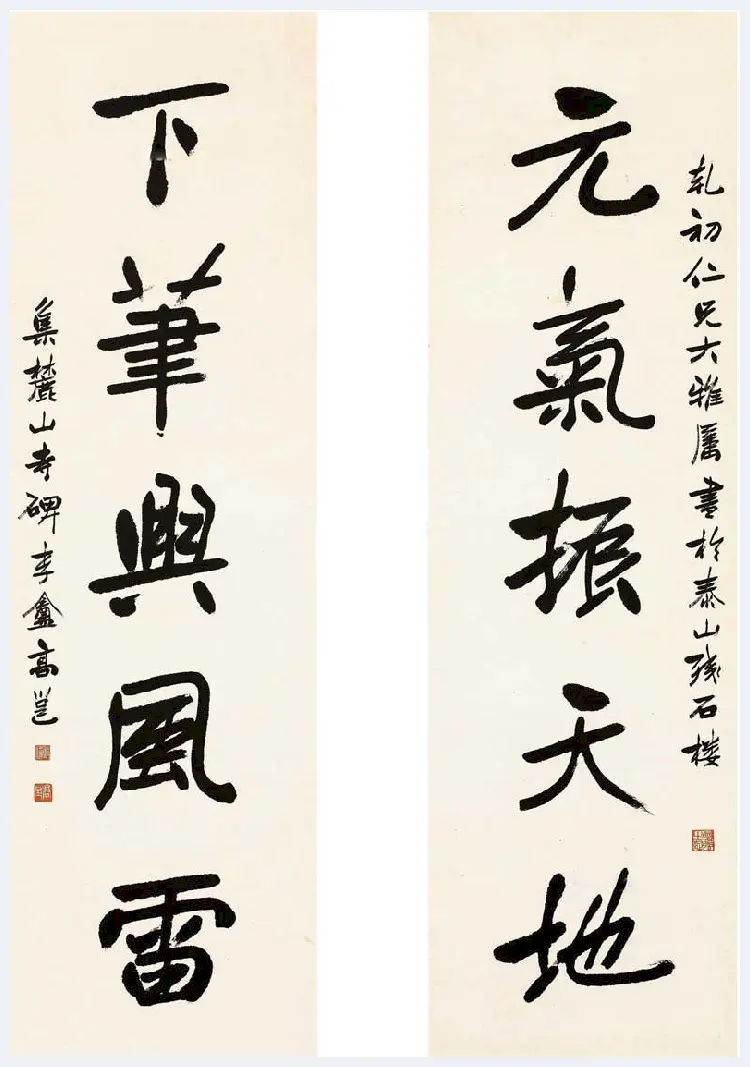 乾初仁兄大雅屬書於泰山殘石樓
元氣振天地
下筆興風雷
集麓山寺碑字李盦高邕